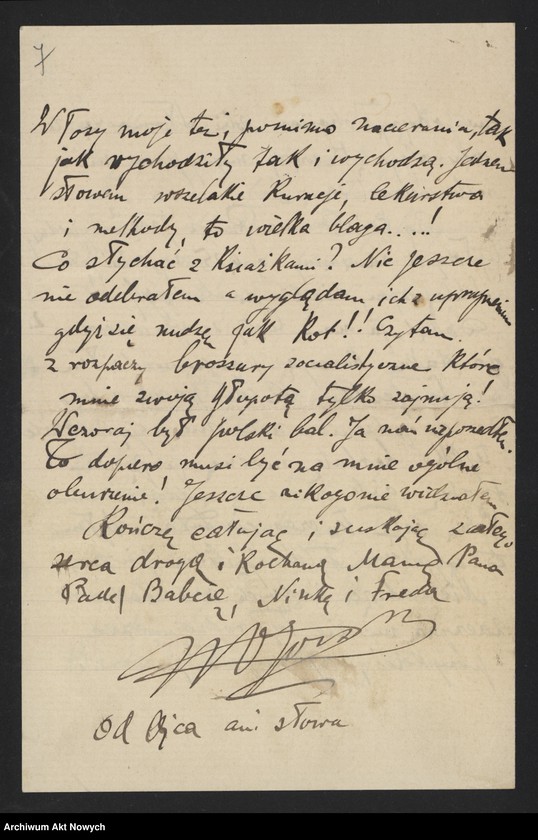 7
Włosy moje też, pomimo nacierania, tak
jak wychodziły tak i wychodzą. Jednem
słowem wszelakie Kuracje, lekarstwa
i methody, to wielka blaga...!
Co słychać z Książkami? Nic jeszcze
nie odebrałem a wyglądam ich z upragnieniem
gdyż się nudzę jak Kot!! Czytam
z rozpaczy broszury socialistyczne Które
mnie swoją głupotą tylko zajmują!
Wczoraj był polski bal. Ja nań nie poszedłem.
To dopero musi być na mnie ogólne
oburzenie! Jeszcze nikogo nie widziałem
Kończę całując i ściskając z całego
serca drogą i Kochaną Mamę Pana
Babcię, Ninkę i Freda
Od Ojca ani słowa
Archiwum Akt Nowych